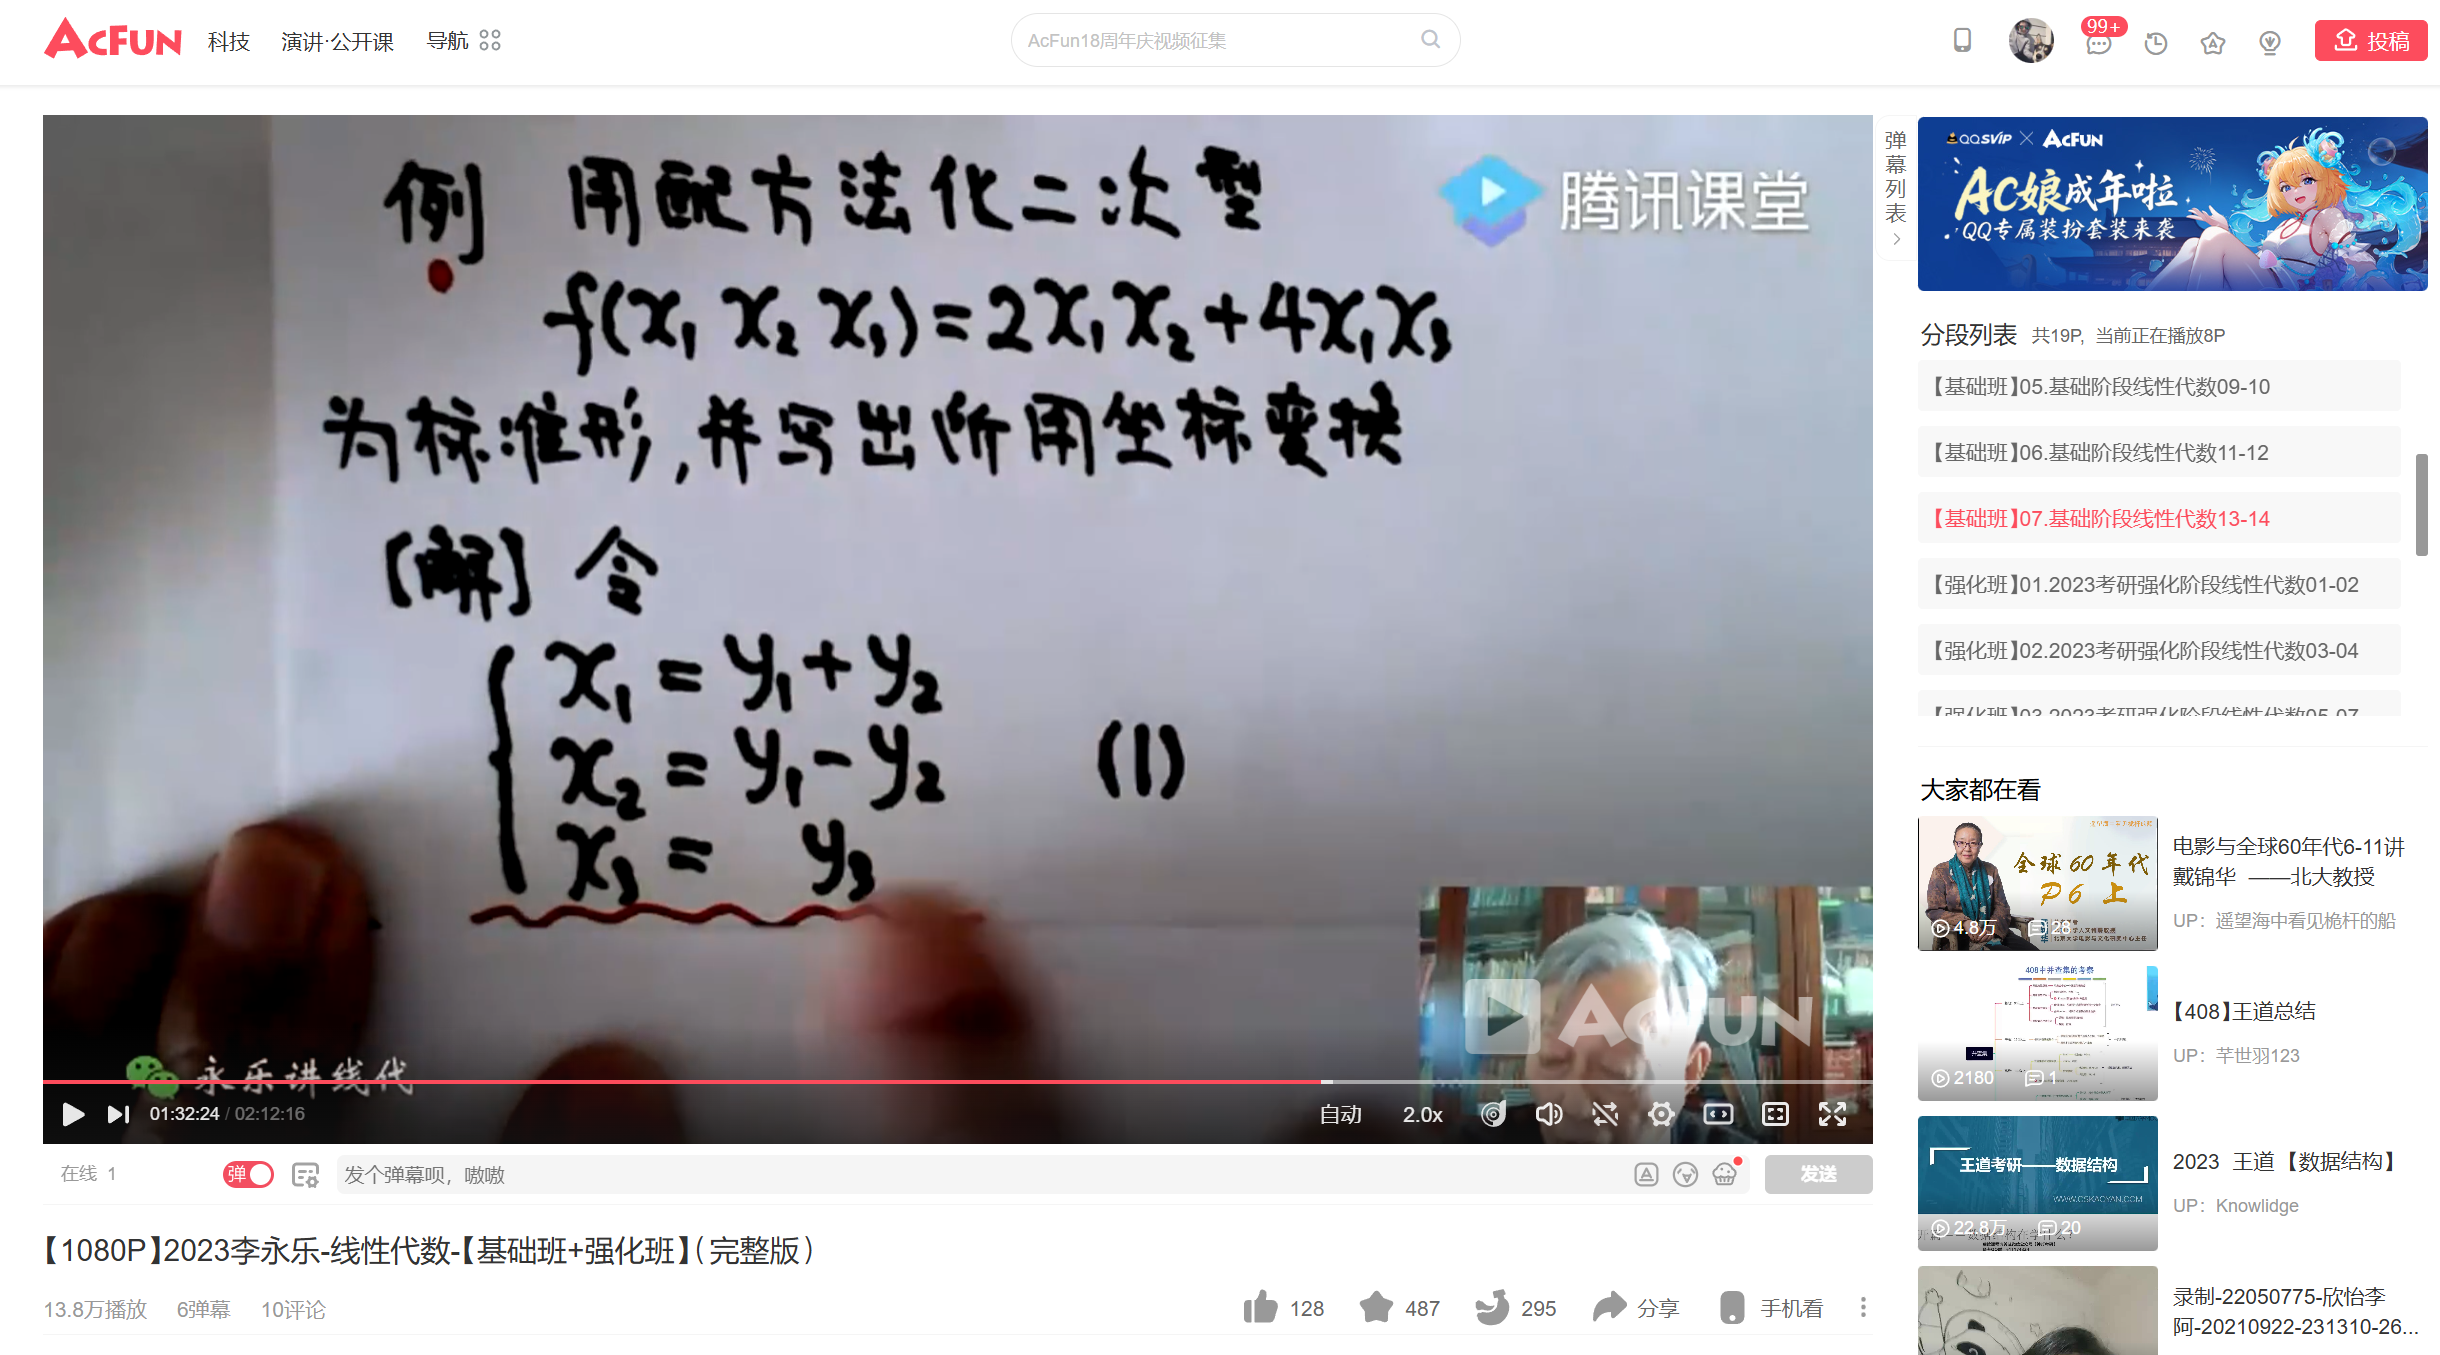 AcFun
科技
演讲·公开课
导航
AcFun18周年庆视频征集
99+
投稿
例 用配方法化二次型
f(x₁ x₂ x₃)=2x₁x₂+4x₁x₃
为标准形,并写出所用坐标变换
[解] 令
x₁ = y₁+y₂
x₂ = y₁-y₂ (1)
x₃ = y₃
腾讯课堂
AcFun
永乐讲线代
01:32:24 / 02:12:16
自动
2.0x
在线 1
弹
发个弹幕呗，嗷嗷
发送
【1080P】2023李永乐-线性代数-【基础班+强化班】（完整版）
13.8万播放
6弹幕
10评论
128
487
295
分享
手机看
弹幕列表
QQSVIP × AcFun
AC娘成年啦
QQ专属装扮套装来袭
分段列表 共19P，当前正在播放8P
【基础班】05.基础阶段线性代数09-10
【基础班】06.基础阶段线性代数11-12
【基础班】07.基础阶段线性代数13-14
【强化班】01.2023考研强化阶段线性代数01-02
【强化班】02.2023考研强化阶段线性代数03-04
【强化班】03.2023考研强化阶段线性代数05-07
大家都在看
全球60年代
P6 上
4.8万
28
电影与全球60年代6-11讲
戴锦华 ——北大教授
UP：遥望海中看见桅杆的船
408中并查集的考察
2180
1
【408】王道总结
UP：芊世羽123
王道考研——数据结构
WWW.CSKAOYAN.COM
22.8万
20
2023 王道【数据结构】
UP：Knowlidge
录制-22050775-欣怡李
阿-20210922-231310-26...